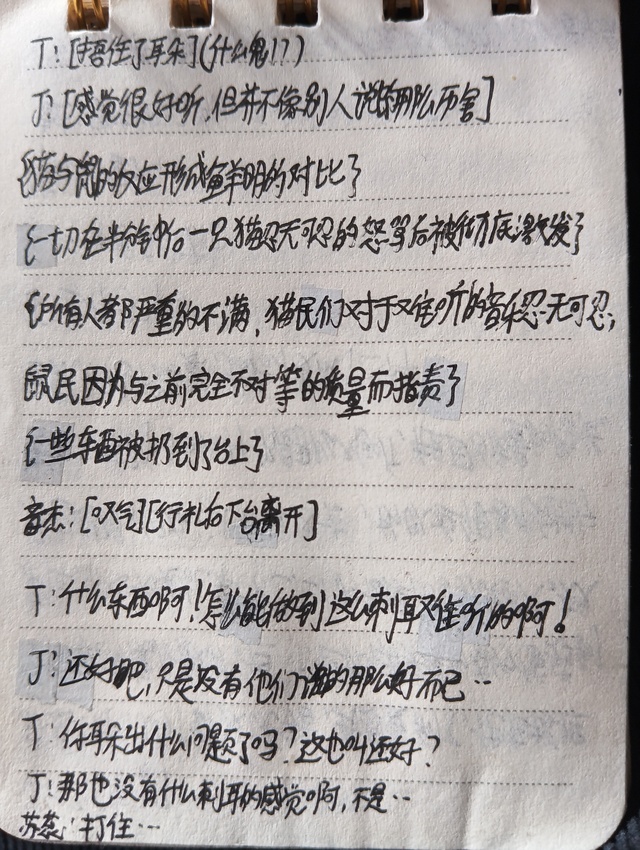 T:[捂住了耳朵](什么鬼!?)
J:[感觉很好听,但并不像别人说的那么厉害]
{猫与鼠的反应形成鲜明的对比了
{一切在半途中后一只猫忍无可忍的怒骂后被彻底激发了
{所有人都严重的不满,猫民们对于难听的音乐忍无可忍,
鼠民因为与之前完全不对等的质量而指责了
{一些东西被扔到了台上了
音杰:[叹气][行礼后下台离开]
T:什么东西啊!怎么能做到这么刺耳难听的啊!
J:还好吧,只是没有他们说的那么好而已··
T:你耳朵出什么问题了吗?这也叫还好?
J:那也没有什么刺耳的感觉啊,不是··
苏蕊:打住···